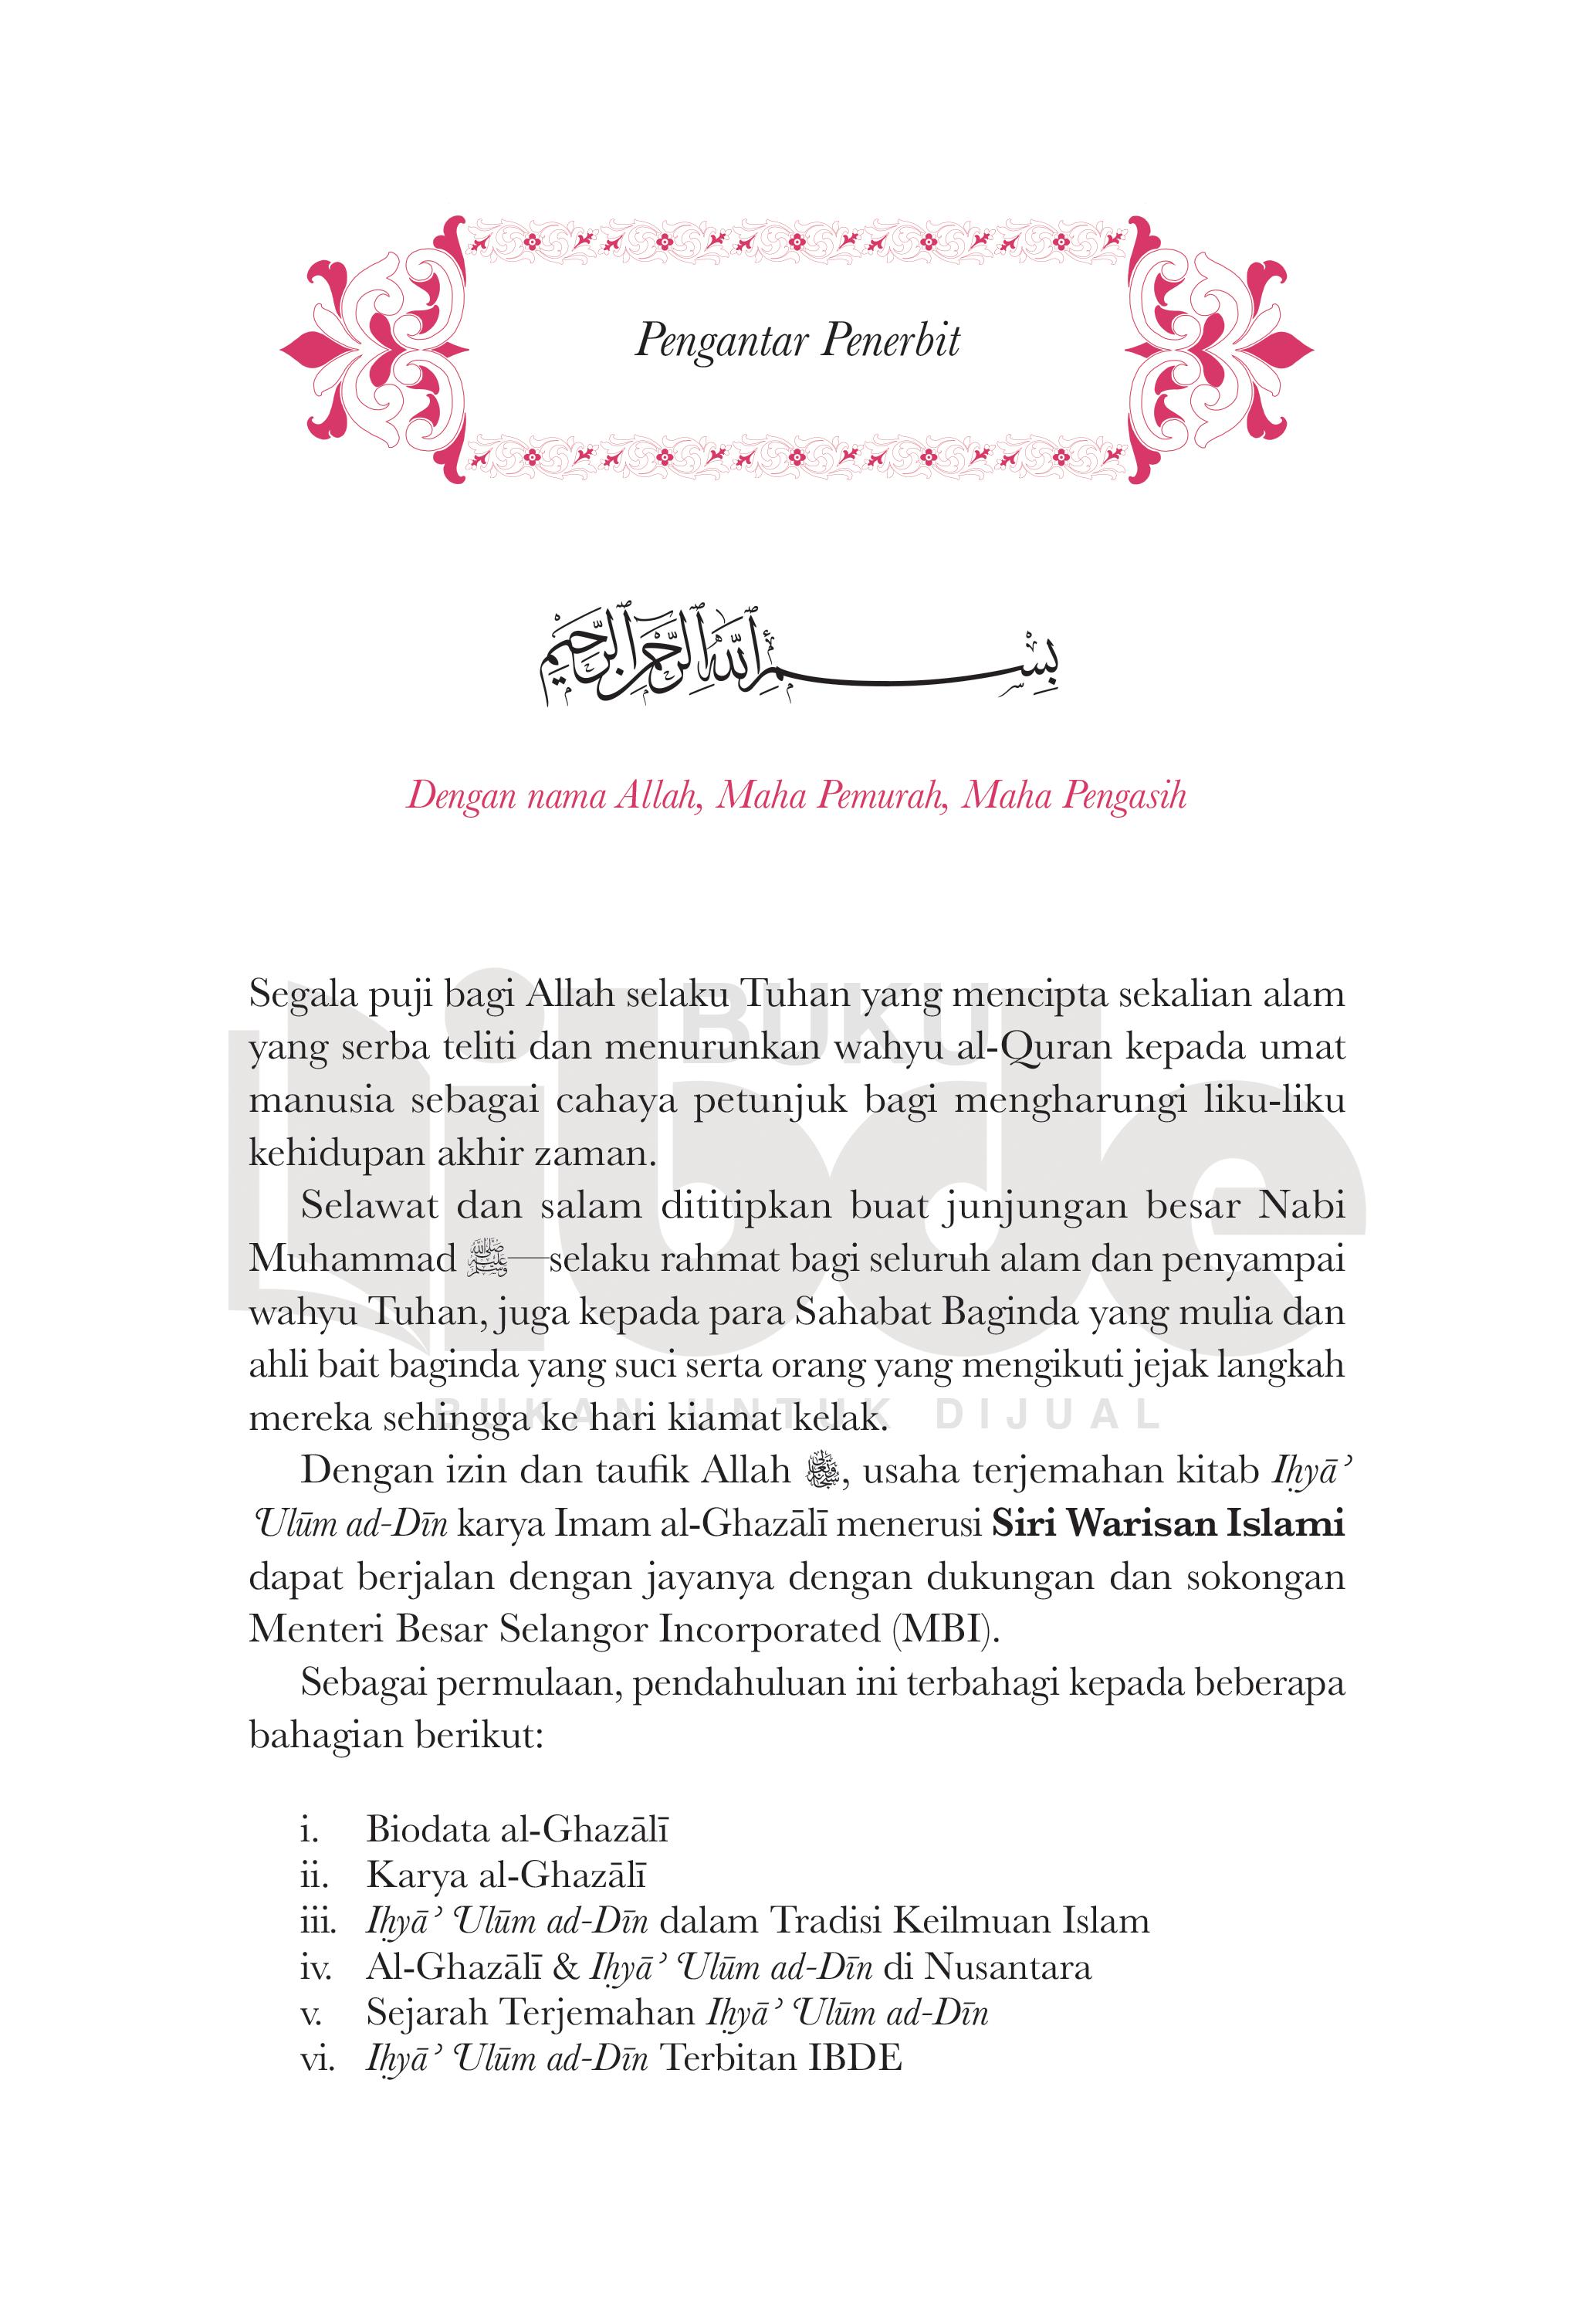 Pengantar Penerbit
بِسْمِ ٱللَّهِ ٱلرَّحْمَٰنِ ٱلرَّحِيمِ
Dengan nama Allah, Maha Pemurah, Maha Pengasih
Segala puji bagi Allah selaku Tuhan yang mencipta sekalian alam
yang serba teliti dan menurunkan wahyu al-Quran kepada umat
manusia sebagai cahaya petunjuk bagi mengharungi liku-liku
kehidupan akhir zaman.
Selawat dan salam dititipkan buat junjungan besar Nabi
Muhammad ﷺ—selaku rahmat bagi seluruh alam dan penyampai
wahyu Tuhan, juga kepada para Sahabat Baginda yang mulia dan
ahli bait baginda yang suci serta orang yang mengikuti jejak langkah
mereka sehingga ke hari kiamat kelak.
Dengan izin dan taufik Allah سبحانه وتعالى, usaha terjemahan kitab Iḥyā’
‘Ulūm ad-Dīn karya Imam al-Ghazālī menerusi Siri Warisan Islami
dapat berjalan dengan jayanya dengan dukungan dan sokongan
Menteri Besar Selangor Incorporated (MBI).
Sebagai permulaan, pendahuluan ini terbahagi kepada beberapa
bahagian berikut:
i. Biodata al-Ghazālī
ii. Karya al-Ghazālī
iii. Iḥyā’ ‘Ulūm ad-Dīn dalam Tradisi Keilmuan Islam
iv. Al-Ghazālī & Iḥyā’ ‘Ulūm ad-Dīn di Nusantara
v. Sejarah Terjemahan Iḥyā’ ‘Ulūm ad-Dīn
vi. Iḥyā’ ‘Ulūm ad-Dīn Terbitan IBDE
BUKU
ibde
BUKAN UNTUK DIJUAL